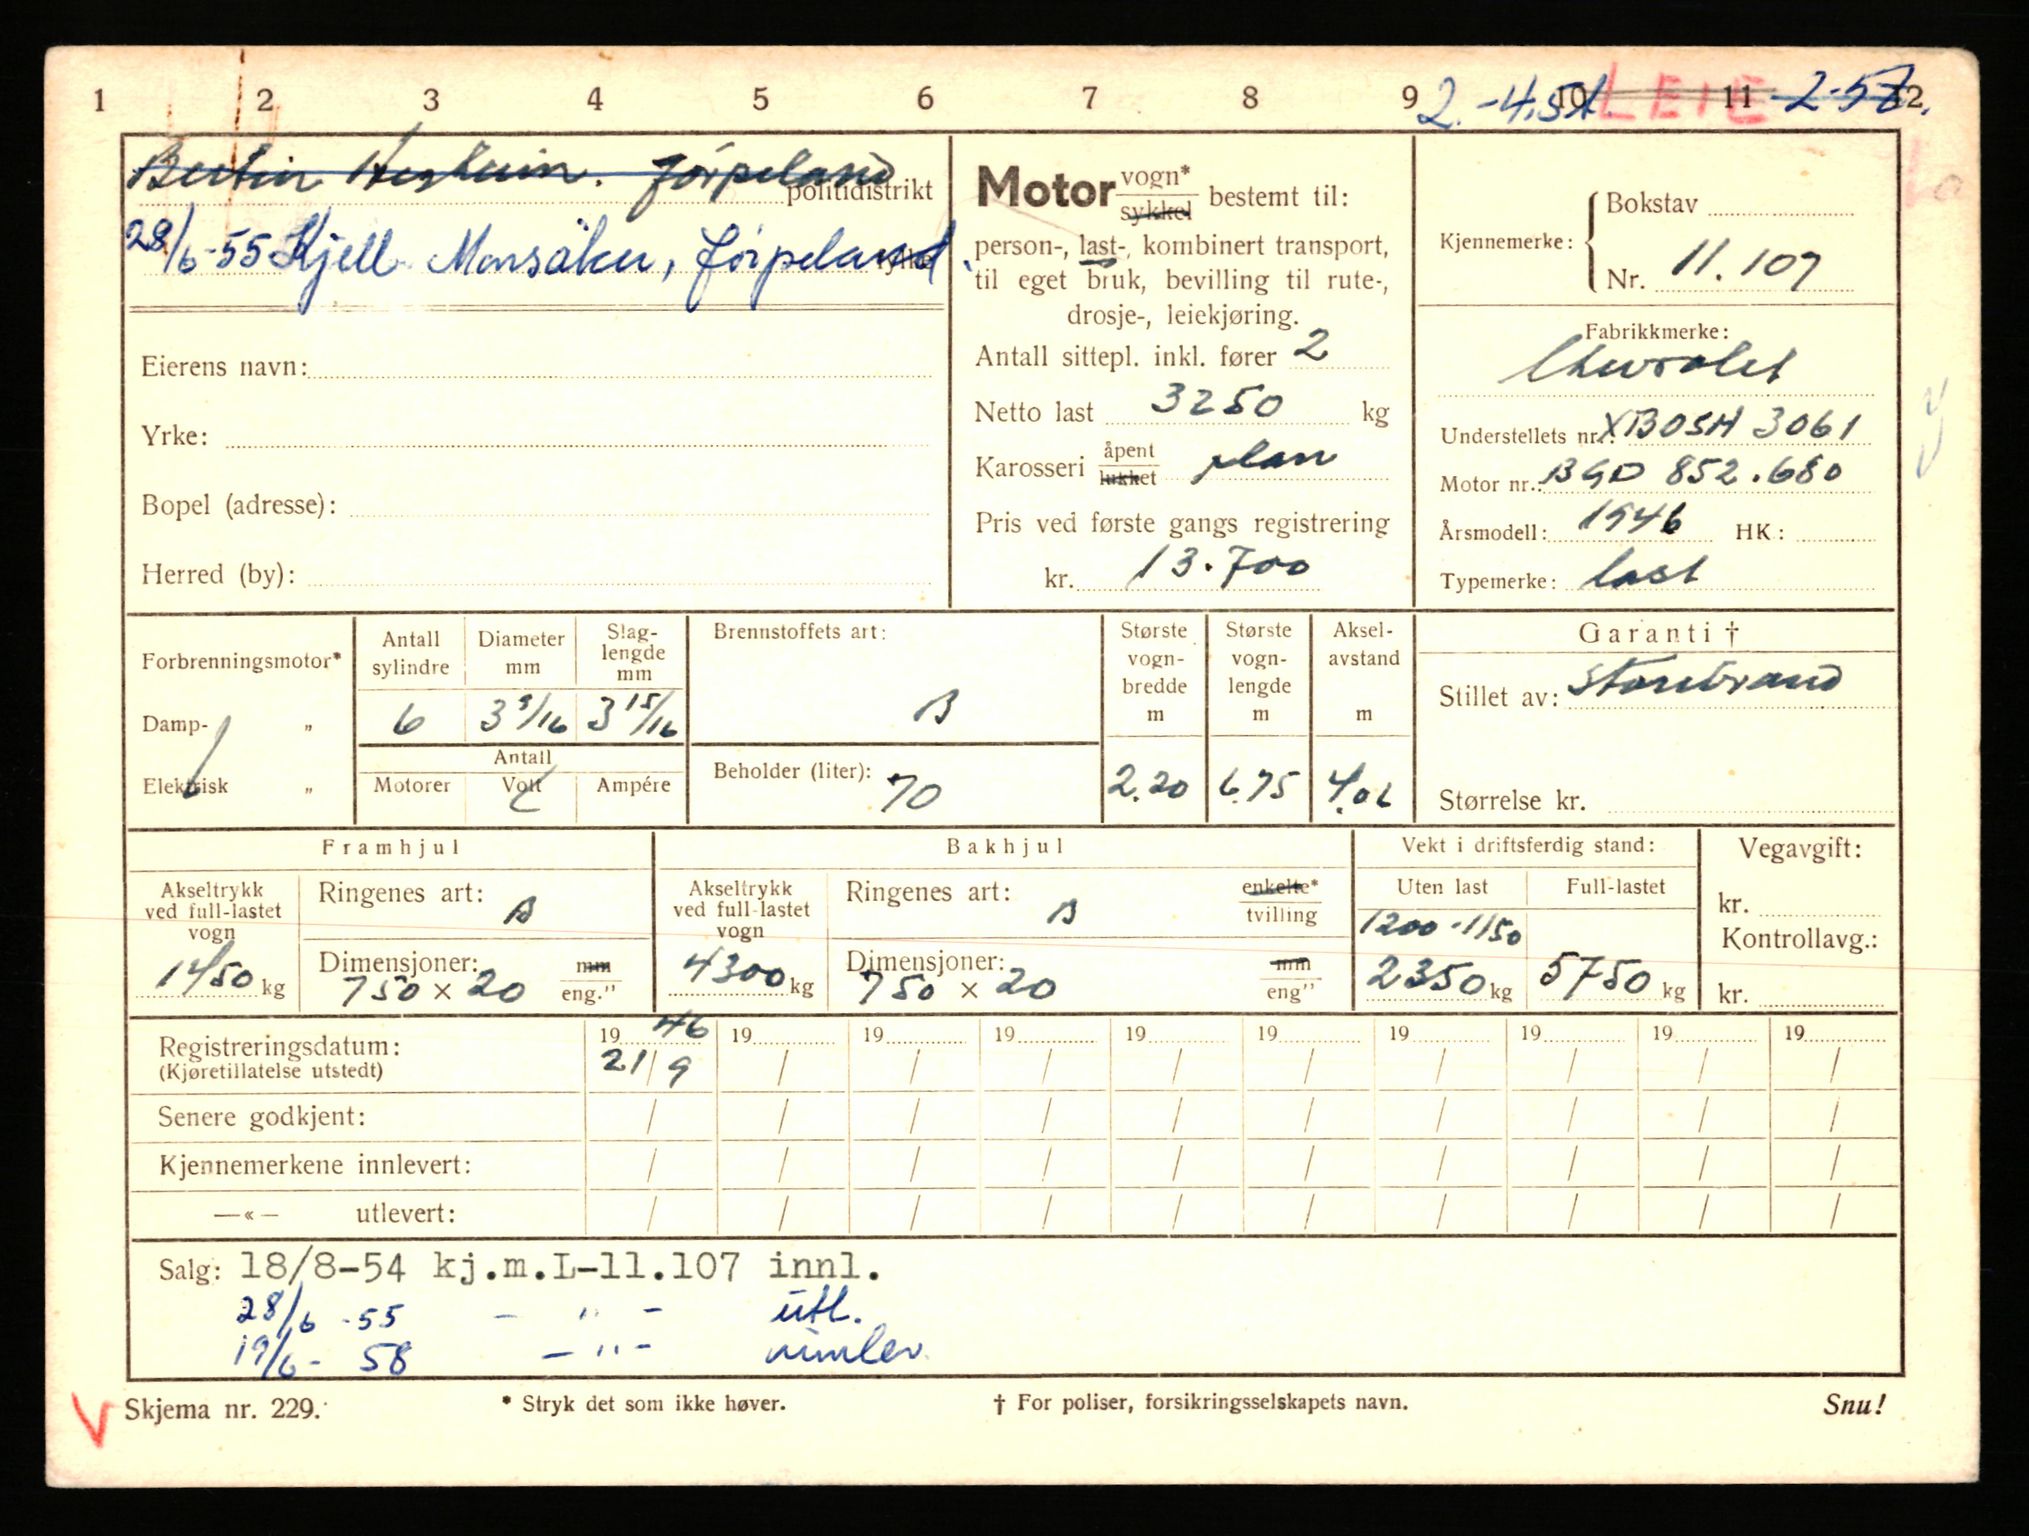 1 2 3 4 5 6 7 8 9 10 11 12
2.-4.51 LEIE -2-57.
Jørpeland
politidistrikt
28/6-55 Kjell Monsåker, Jørpeland
fylke
Eierens navn:
Yrke:
Bopel (adresse):
Herred (by):
Motor vogn* sykkel bestemt til:
person-, last-, kombinert transport,
til eget bruk, bevilling til rute-,
drosje-, leiekjøring.
Antall sittepl. inkl. fører 2
Netto last 3250 kg
Karosseri åpent lukket plan
Pris ved første gangs registrering
kr. 13.700
Kjennemerke: Bokstav
Nr. 11.107
Fabrikkmerke:
Chevrolet
Understellets nr.: XBOSH 3061
Motor nr.: BGD 852.680
Årsmodell: 1946 HK:
Typemerke: last
Forbrenningsmotor*
Damp- „
Elektrisk „
Antall sylindre
Diameter mm
Slag-lengde mm
6 3 9/16 3 15/16
Antall
Motorer Volt Ampére
Brennstoffets art:
B
Beholder (liter): 70
Største vogn-bredde m
Største vogn-lengde m
Aksel-avstand m
2.20 6.75 4.06
Garanti †
Stillet av: Storebrand
Størrelse kr.
Framhjul
Akseltrykk ved full-lastet vogn
1450 kg
Ringenes art: B
Dimensjoner: mm
750 × 20 eng."
Bakhjul
Akseltrykk ved full-lastet vogn
4300 kg
Ringenes art: B enkelte* tvilling
Dimensjoner: mm
750 × 20 eng"
Vekt i driftsferdig stand:
Uten last Full-lastet
1200-1150
2350 kg 5750 kg
Vegavgift:
kr.
Kontrollavg.:
kr.
19 46 19 19 19 19 19 19 19 19 19
Registreringsdatum: 21/9 / / / / / / / / /
(Kjøretillatelse utstedt)
Senere godkjent: / / / / / / / / / /
Kjennemerkene innlevert: / / / / / / / / / /
—«— utlevert: / / / / / / / / / /
Salg: 18/8-54 kj.m.L-11.107 innl.
28/6-55 - " - utl.
19/6-58 - " - innlev
V Skjema nr. 229.
* Stryk det som ikke høver.
† For poliser, forsikringsselskapets navn.
Snu!